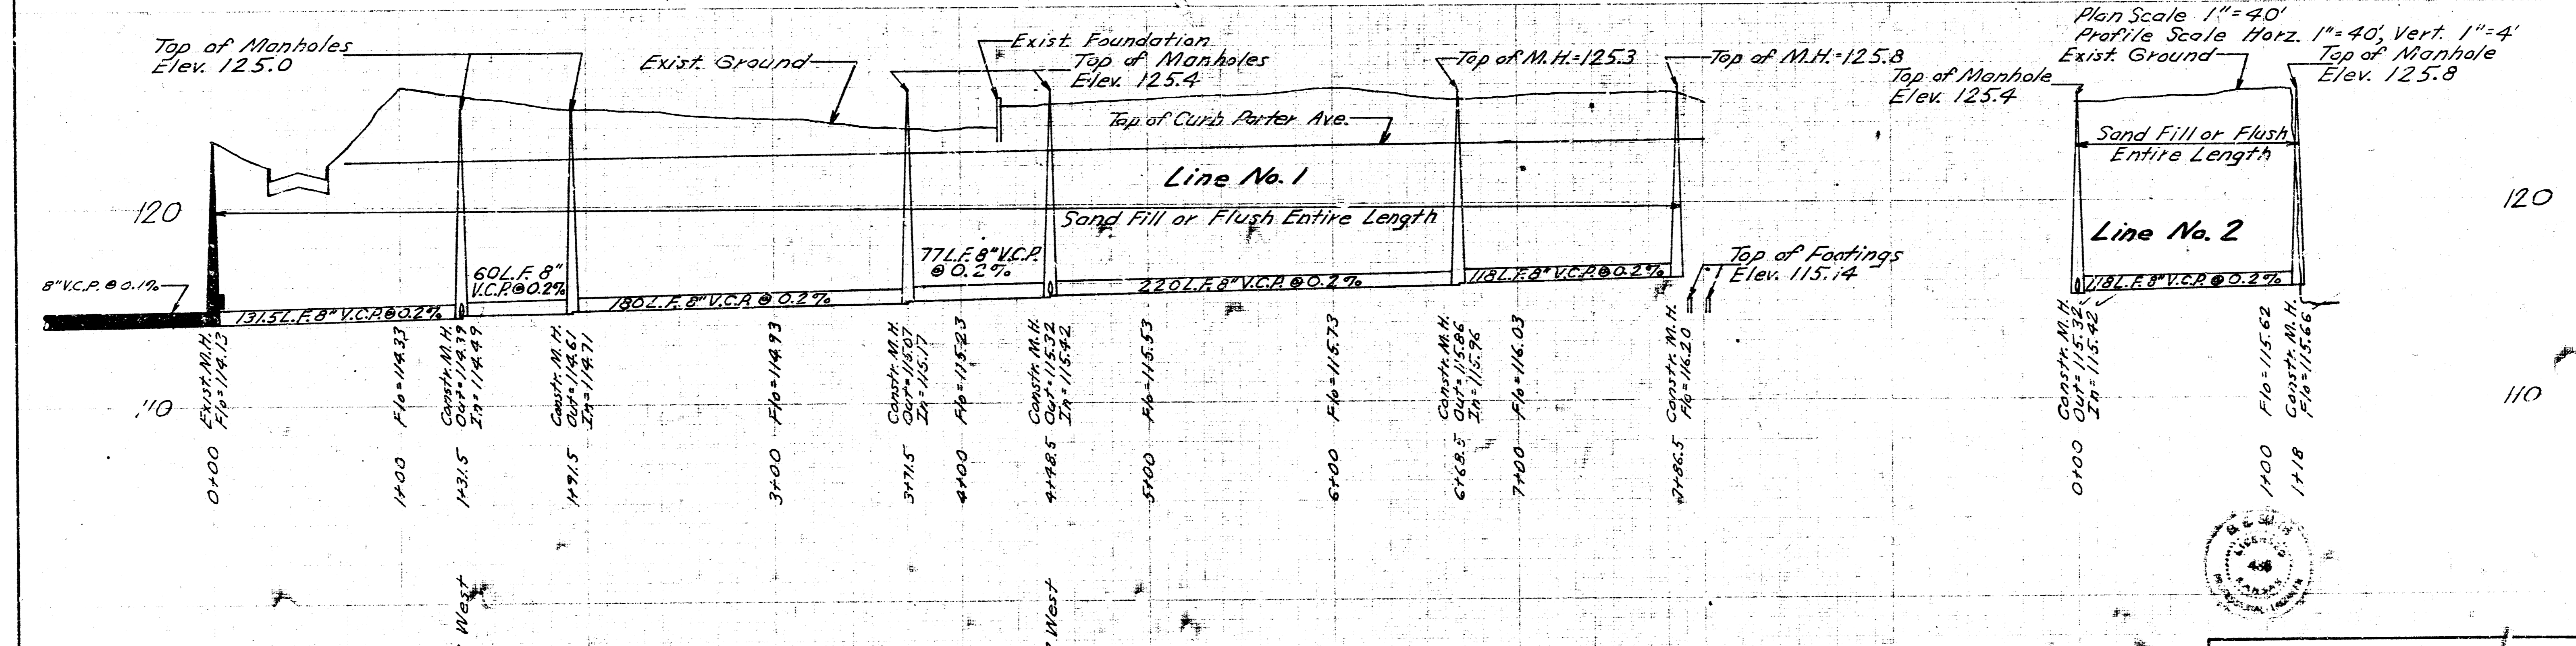 Plan Scale 1"=40'
Profile Scale Horz. 1"=40', Vert. 1"=4'
Top of Manholes
Elev. 125.0
Exist. Ground
Exist. Foundation
Top of Manholes
Elev. 125.4
Top of M.H.=125.3
Top of M.H.=125.8
Top of Manhole
Elev. 125.4
Exist. Ground
Top of Manhole
Elev. 125.8
Top of Curb Porter Ave.
Line No. 1
Sand Fill or Flush Entire Length
Sand Fill or Flush
Entire Length
Line No. 2
120
120
8" V.C.P. @ 0.1%
131.5 L.F. 8" V.C.P. @ 0.2%
60 L.F. 8"
V.C.P. @ 0.2%
180 L.F. 8" V.C.P. @ 0.2%
77 L.F. 8" V.C.P.
@ 0.2%
220 L.F. 8" V.C.P. @ 0.2%
118 L.F. 8" V.C.P. @ 0.2%
Top of Footings
Elev. 115.14
118 L.F. 8" V.C.P. @ 0.2%
110
110
Exist. M.H.
Flo=114.13
Flo=114.33
Constr. M.H.
Out=114.39
In=114.49
Constr. M.H.
Out=114.61
In=114.71
Flo=114.93
Constr. M.H.
Out=115.07
In=115.17
Flo=115.23
Constr. M.H.
Out=115.32
In=115.42
Flo=115.53
Flo=115.73
Constr. M.H.
Out=115.86
In=115.96
Flo=116.03
Constr. M.H.
Flo=116.20
Constr. M.H.
Out=115.32
In=115.42
Flo=115.62
Constr. M.H.
Flo=115.66
0+00
1+00
1+31.5
1+91.5
3+00
3+71.5
4+00
4+48.5
5+00
6+00
6+68.5
7+00
7+86.5
0+00
1+00
1+18
West
West